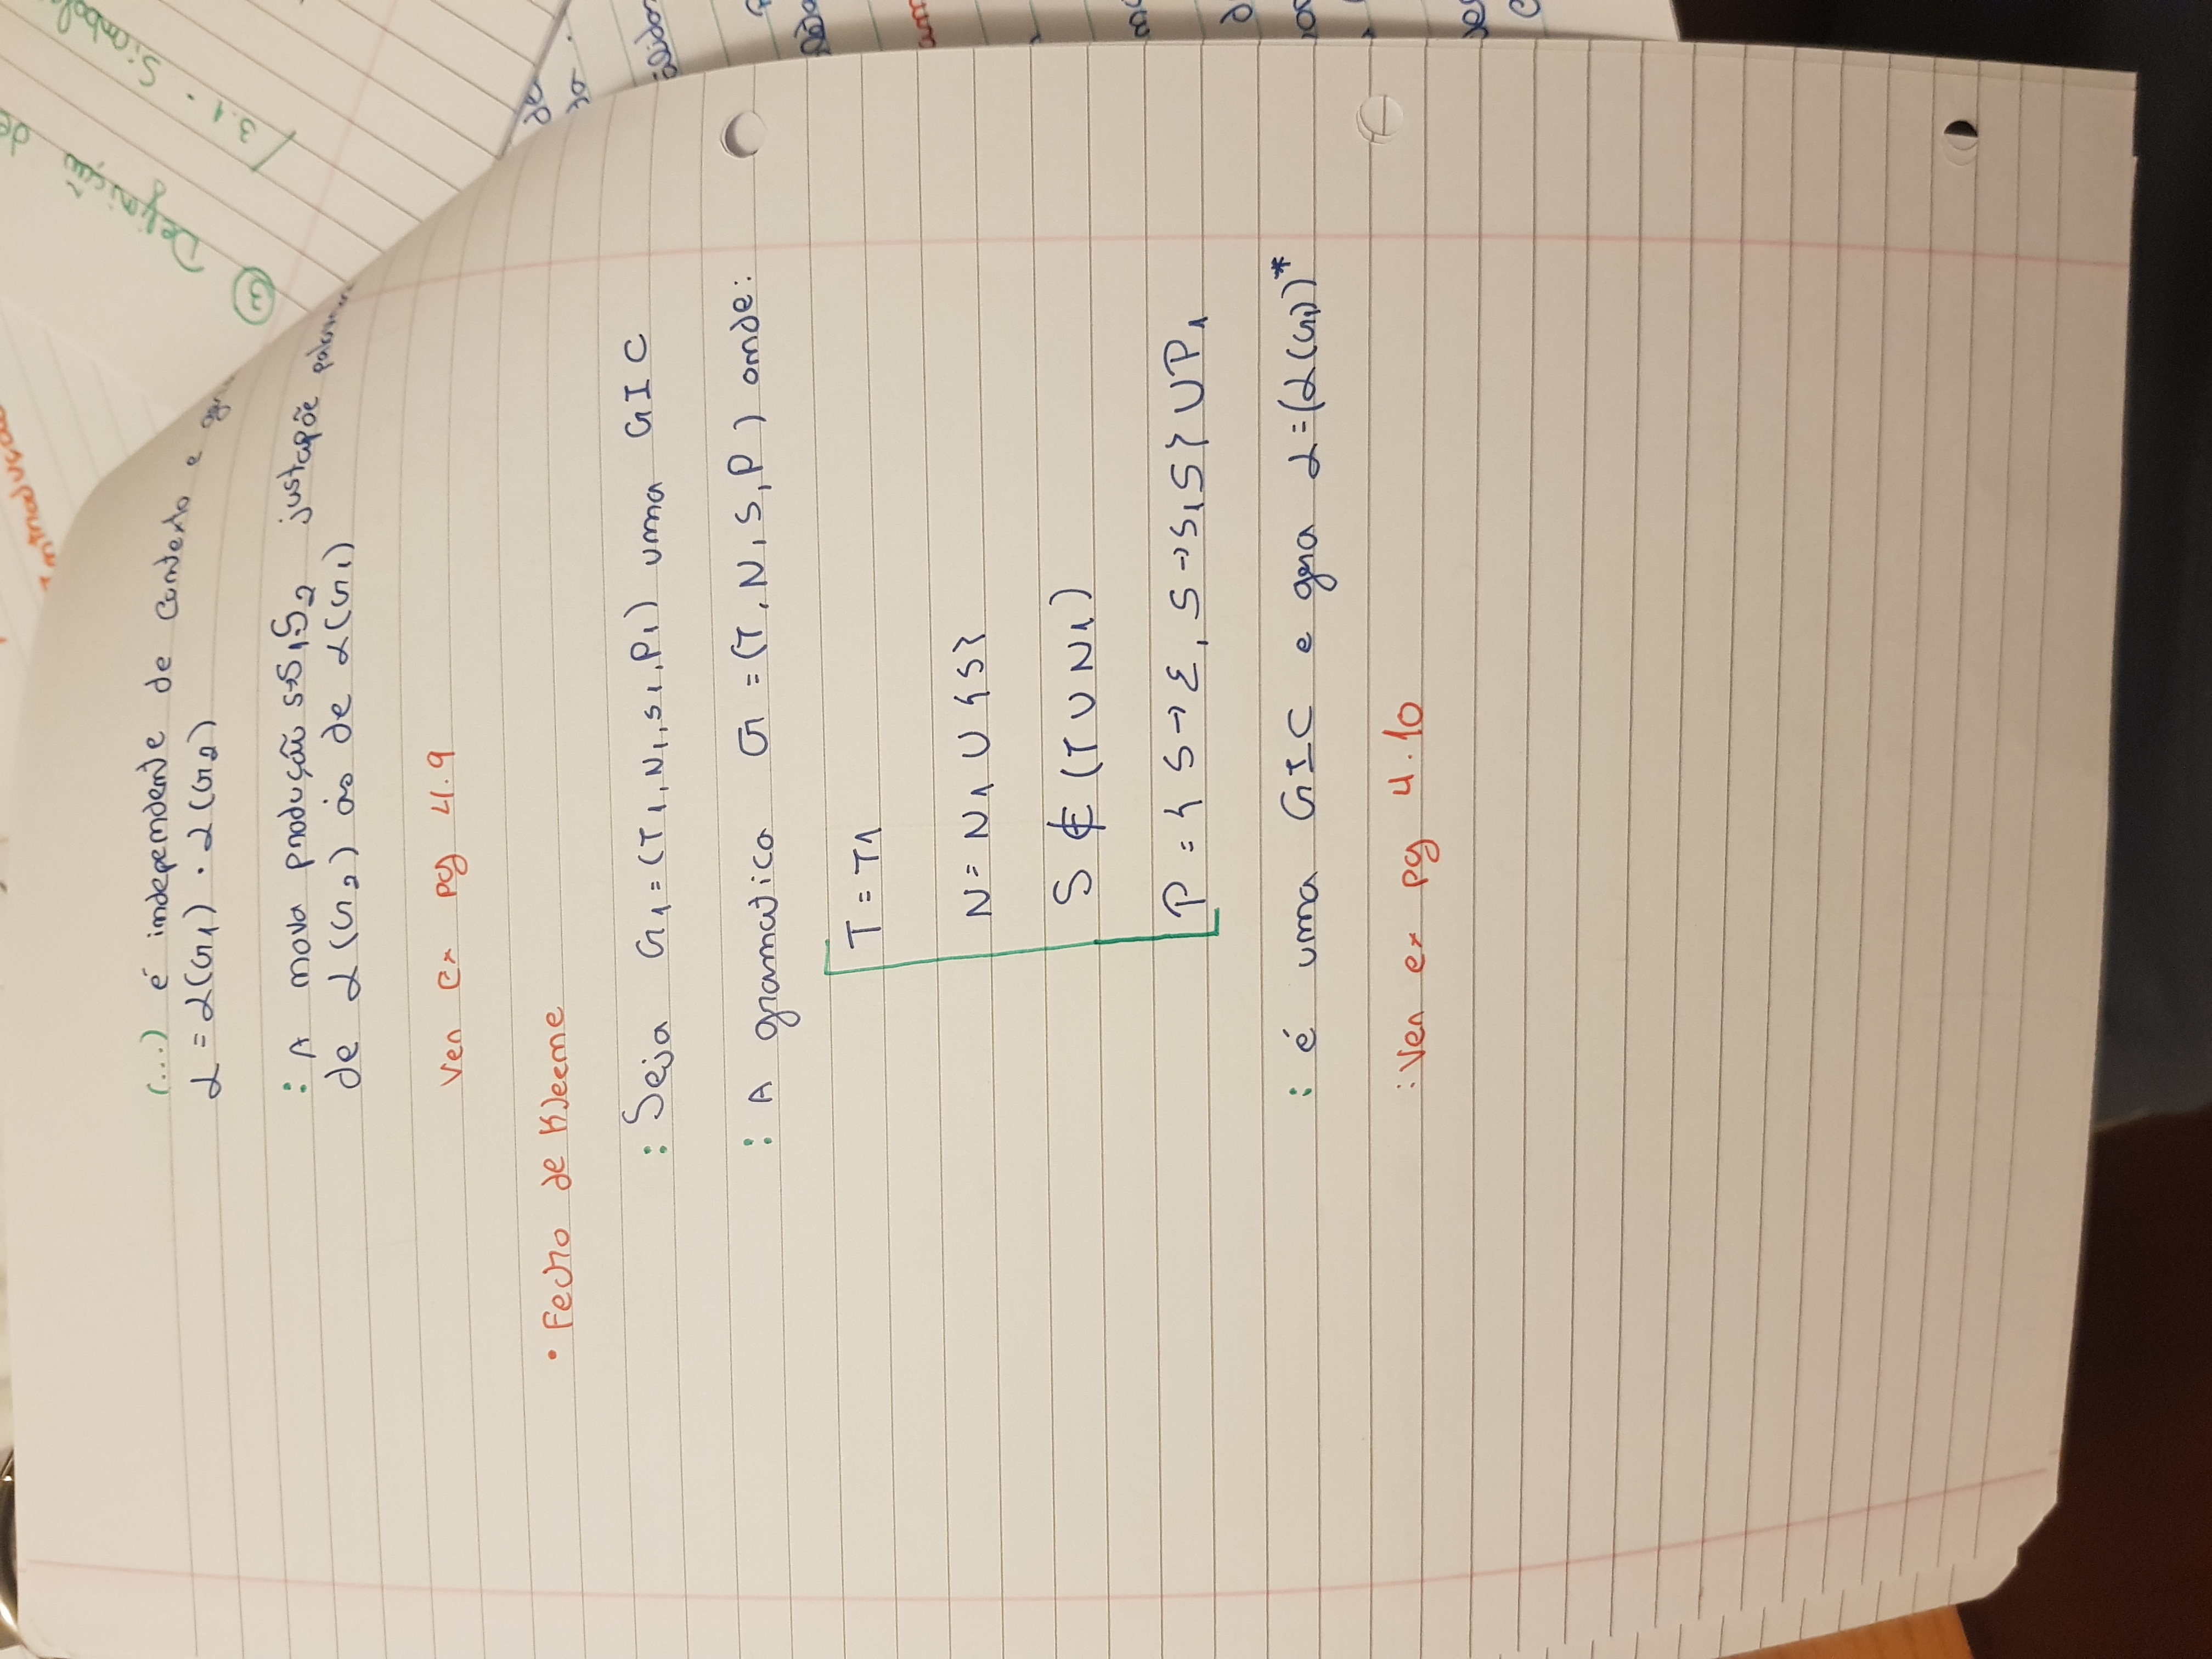 (...) é independente de contexto e
L = L(G1) · L(G2)
: A nova produção S→S1S2 justapõe
de L(G2) às de L(G1)
Ver Ex pg 4.9
• Fecho de Kleene
: Seja G1 = (T1, N1, S1, P1) uma GIC
: A gramatica G = (T, N, S, P) onde:
T = T1
N = N1 ∪ {S}
S ∉ (T ∪ N1)
P = { S→ε, S→S1S} ∪ P1
: é uma GIC e gera L=(L(G1))*
: Ver ex pg 4.10
Introdução
③ Definição de
3.1.
de